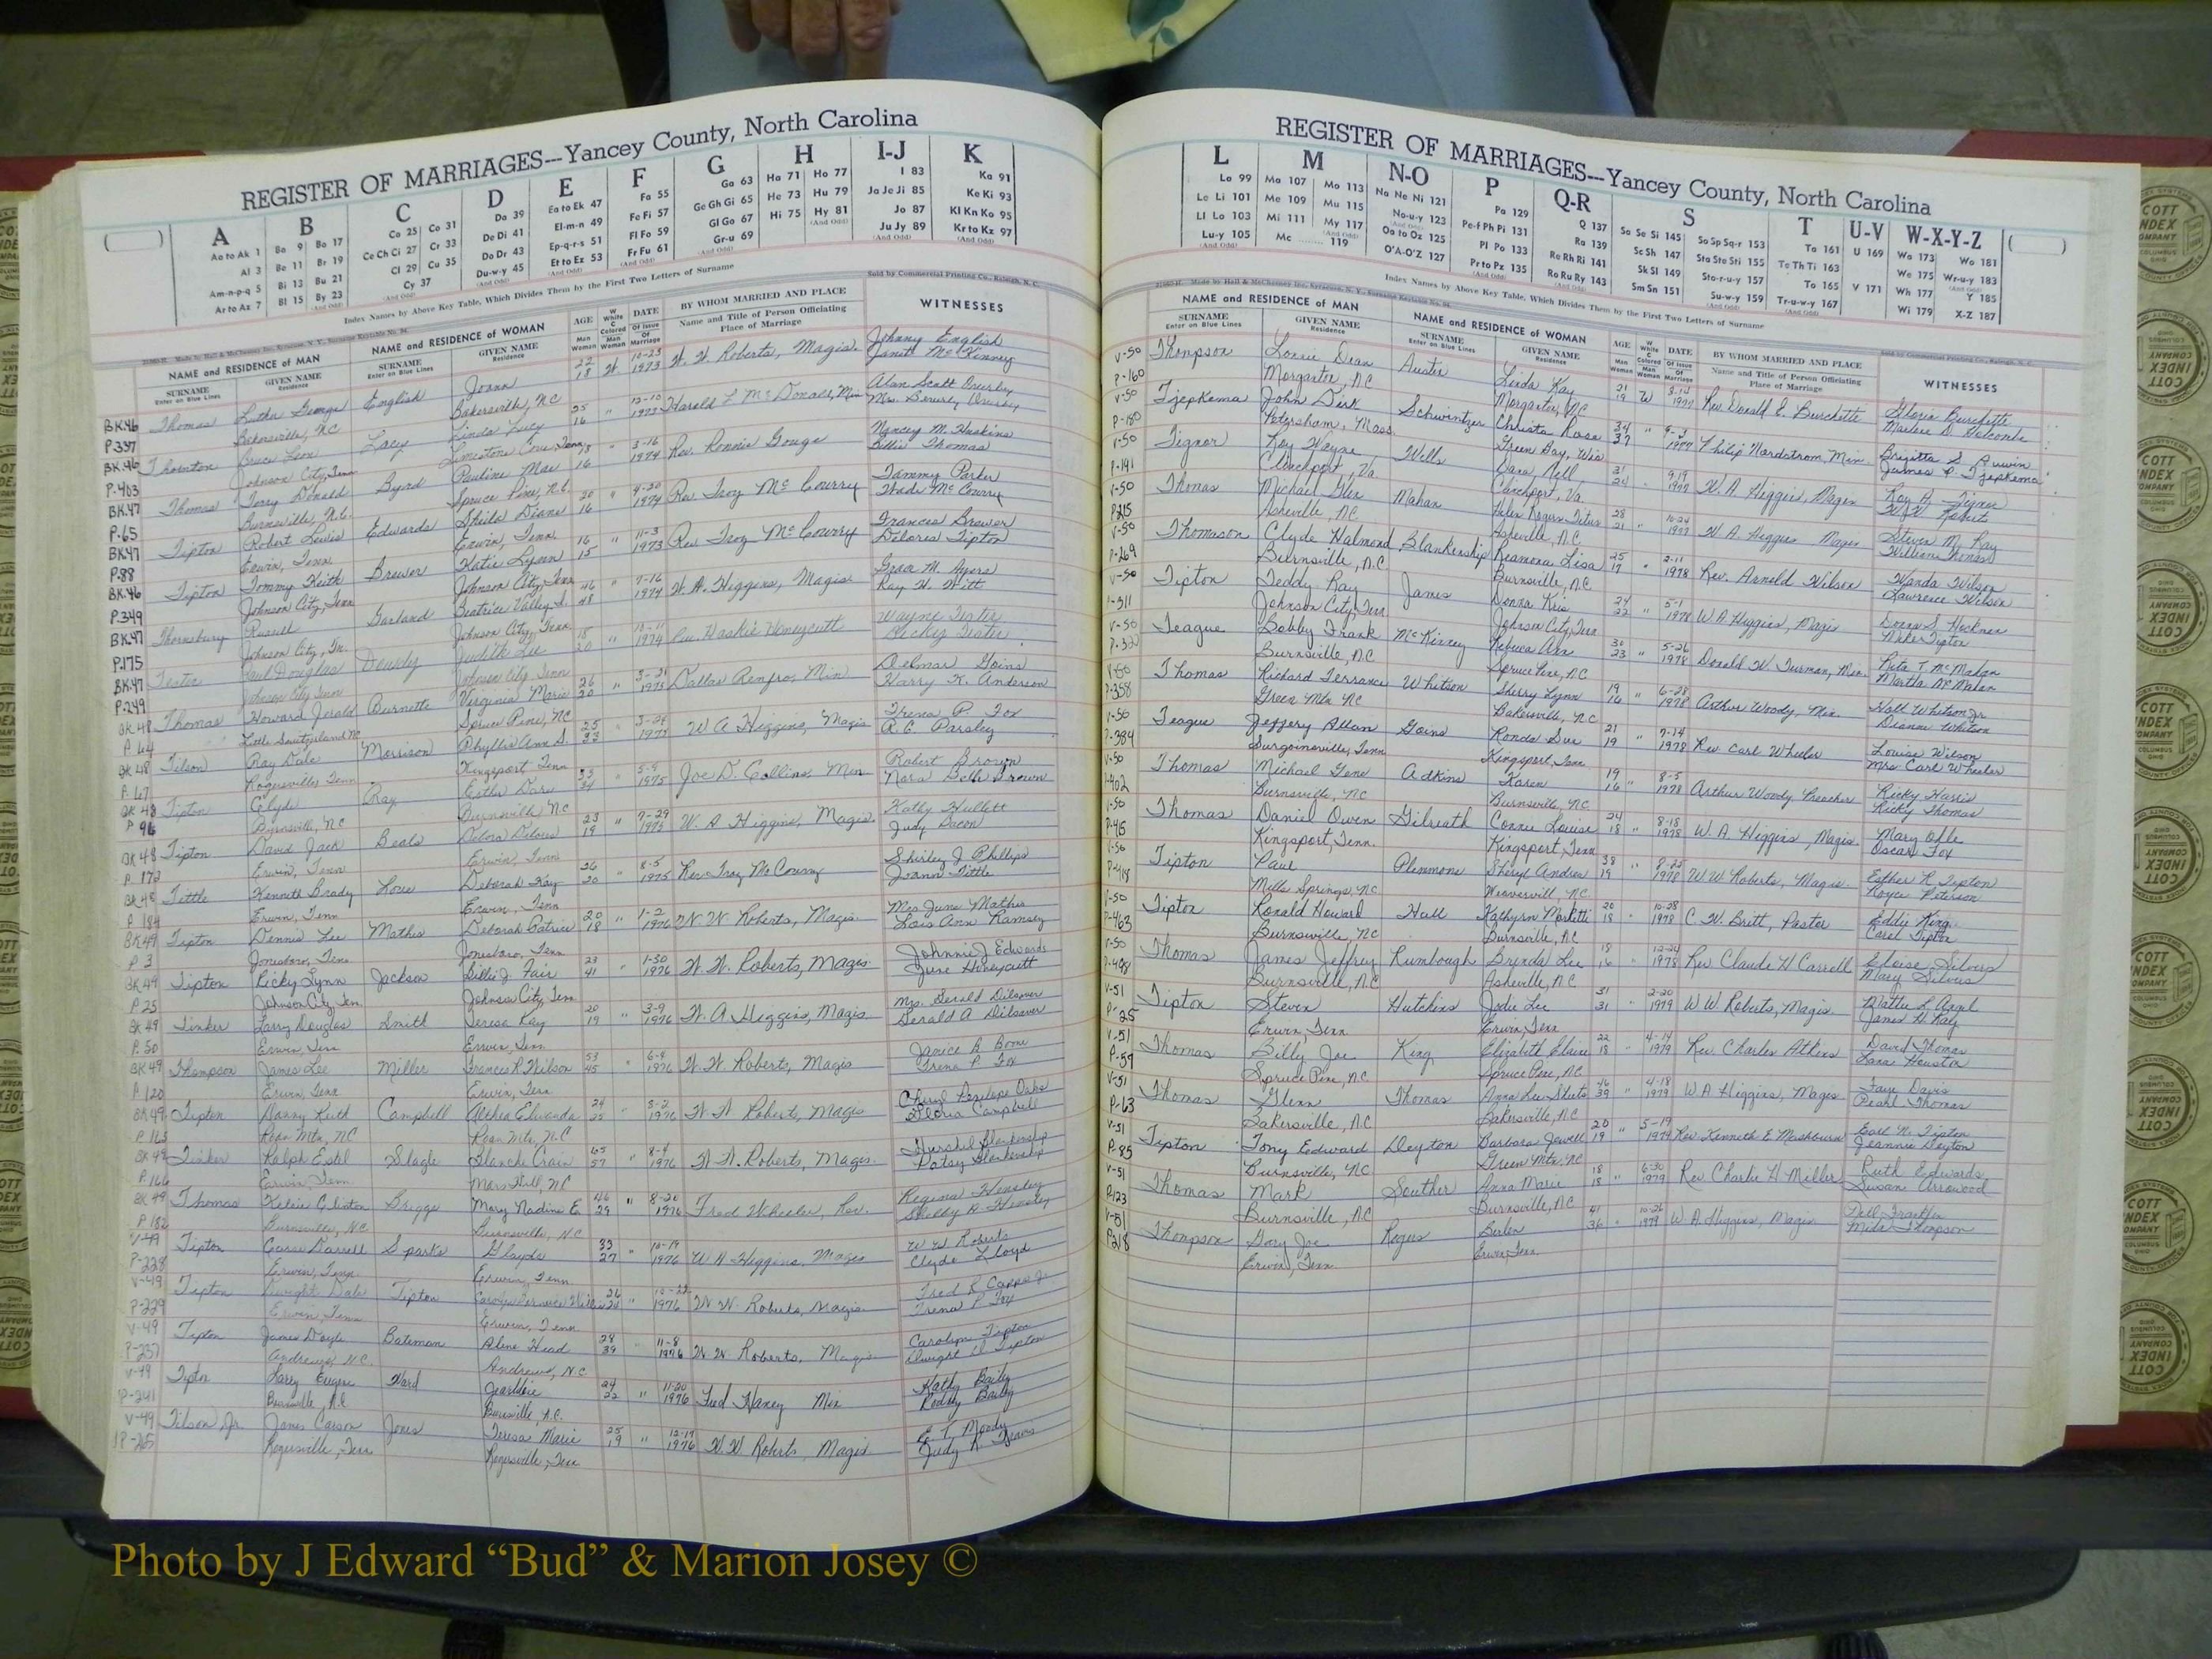 REGISTER OF MARRIAGES---Yancey County, North Carolina
A B C D E F G H I-J K
Aa to Ak 1 Ba 9 Bo 17 Ca 25 Co 31 Da 39 Ea to Ek 47 Fa 55 Ga 63 Ha 71 Ho 77 I 83 Ka 91
Al 3 Be 11 Br 19 Ce Ch Ci 27 Cr 33 De Di 41 El-m-n 49 Fe Fi 57 Ge Gh Gi 65 He 73 Hu 79 Ja Je Ji 85 Ke Ki 93
Am-n-p-q 5 Bi 13 Bu 21 Cl 29 Cu 35 Do Dr 43 Ep-q-r-s 51 Fl Fo 59 Gl Go 67 Hi 75 Hy 81 Jo 87 Kl Kn Ko 95
Ar to Az 7 Bl 15 By 23 Cy 37 Du-w-y 45 Et to Ez 53 Fr Fu 61 Gr-u 69 Ju Jy 89 Kr to Kz 97
Index Names by Above Key Table, Which Divides Them by the First Two Letters of Surname
Sold by Commercial Printing Co., Raleigh, N. C.
NAME and RESIDENCE of MAN NAME and RESIDENCE of WOMAN AGE DATE BY WHOM MARRIED AND PLACE WITNESSES
SURNAME GIVEN NAME SURNAME GIVEN NAME Name and Title of Person Officiating
Enter on Blue Lines Residence Enter on Blue Lines Residence Place of Marriage
BK46 Thomas Luther George English Joann 22 W 10-23 W. W. Roberts, Magis. Johnny English
P.397 Bakersville, NC Bakersville, NC 18 1973 Janet McKinney
BK.46 Thornton Bruce Leon Lacy Linda Lucy 25 " 12-10 Harold L. McDonald, Min Alan Scott
P.403 Johnson City, Tenn Limestone Cove, Tenn 16 1973 Mrs. Beverly
BK.47 Thomas Terry Donald Byrd Pauline Mae 18 " 3-16 Rev. Ronnie Gouge Nancy M. Huskins
P.65 Burnsville, N.C. Spruce Pine, N.C. 16 1974 Billie Thomas
BK47 Tipton Robert Lewis Edwards Sheila Diane 20 " 4-20 Rev. Troy McCourry Tammy Parker
P.88 Erwin, Tenn. Erwin, Tenn 16 1974 Wade McCourry
BK.46 Tipton Tommy Keith Brewer Katie Lynn 16 " 11-3 Rev Troy McCourry Frances Brewer
P.349 Johnson City, Tenn Johnson City, Tenn 15 1973 Delores Tipton
BK.47 Thornsbury Russell Garland Beatrice Valley S. 46 " 7-16 W. A. Higgins, Magis Grace M. Ayers
P.175 Johnson City, Tn. Johnson City, Tenn 48 1974 Ray H. Witt
BK.47 Tester Paul Douglas Judith Lee 18 " 1974 Haskie Honeycutt Wayne Tester
P.249 Johnson City Tenn Johnson City Tenn 20 Ricky Tester
BK 48 Thomas Howard Jerald Burnette Virginia Marie 26 " 3-21 Dallas Renfro, Min Delmar Goins
P 44 Little Switzerland NC Spruce Pine, NC 20 1975 Harry K. Anderson
BK 48 Tilson Roy Dale Morrison Phyllis Ann S. 25 " 3-24 W A Higgins, Magis Trena P. Fox
P. 67 Rogersville, Tenn Kingsport Tenn 23 1975 R. E. Parsley
BK 48 Tipton Clyde Ray Esther Dare " 5-9 Joe D. Collins, Min Robert Brown
P 96 Burnsville, NC Burnsville NC 1975 Nora Belle Brown
BK 48 Tipton David Jack Beals Debora Delores 23 " 7-29 W. A Higgins, Magis. Kathy Hullett
P. 172 Erwin, Tenn Erwin, Tenn 19 1975 Judy Bacon
BK 48 Tittle Kenneth Brady Love Deborah Kay 26 " 8-5 Rev Troy McCourry Shirley J Phillips
P. 184 Erwin, Tenn Erwin, Tenn 20 1975 Joann Tittle
BK49 Tipton Dennis Lee Mathis Deborah Patrice 20 " 1-2 W. W. Roberts, Magis. Mrs June Mathis
P 3 Jonesboro, Tenn Jonesboro, Tenn 18 1976 Lois Ann Ramsey
BK 49 Tipton Ricky Lynn Jackson Billie J. Fair 23 " 1-30 W. W. Roberts, Magis. Johnnie J Edwards
P. 25 Johnson City, Ten Johnson City, Tenn 41 1976 June Honeycutt
BK 49 Tinker Larry Douglas Smith Teresa Kay 20 " 3-9 W. A Higgins, Magis. Mrs. Gerald Dilsaver
P. 50 Erwin, Tenn Erwin, Tenn 19 1976 Gerald A Dilsaver
BK 49 Thompson James Lee Miller Frances R Wilson 53 " 6-4 W. W. Roberts, Magis Janice B Boone
P 120 Erwin, Tenn Erwin, Tenn 45 1976 Trena P Fox
BK 49 Tipton Danny Keith Campbell Althea Elwanda 24 " 5-2 W. W. Roberts, Magis Cheryl Penelope Oaks
P. 163 Roan Mtn, NC Roan Mtn, N.C 25 1976 Gloria Campbell
BK 49 Tinker Ralph Estel Slagle Blanche Crain 65 " 8-4 W. W. Roberts, Magis. Hershel Blankenship
P. 166 Erwin, Tenn Mars Hill, NC 57 1976 Patsy Blankenship
BK 49 Thomas Kelsie Clinton Briggs Mary Nadine E. 46 " 8-20 Fred Wheeler, Rev. Regina Hensley
P 182 Burnsville, NC. Burnsville, NC 29 1976 Shelby A Hensley
V-49 Tipton Darrell Sparks Glayds 33 " 10-19 W A Higgins, Magis W W Roberts
P-228 Erwin, Tenn. Erwin, Tenn. 27 1976 Clyde Lloyd
V-49 Tipton Dwight Dale Tipton 26 " W. W. Roberts, Magis Fred R Capps Jr
P-229 Erwin, Tenn Erwin, Tenn 1976 Trena P Fox
V-49 Tipton James Doyle Bateman Alene Head 28 " 11-8 W W Roberts, Magis Carolyn Tipton
P-237 Andrews, N.C. Andrews, N.C 39 1976 Dwight D Tipton
V-49 Tipton Larry Eugene Ward Jearldine 24 " 11-20 Fred Haney Min Kathy Baily
P-241 Burnsville, N.C Burnsville, N.C. 22 1976 Roddy Baily
V-49 Tilson, Jr. James Carson Jones Teresa Marie 25 " 12-17 W. W. Roberts, Magis. E. T. Moody
P-265 Rogersville, Tenn Rogersville, Tenn 19 1976 Judy R.
REGISTER OF MARRIAGES---Yancey County, North Carolina
L M N-O P Q-R S T U-V W-X-Y-Z
La 99 Ma 107 Mo 113 Na Ne Ni 121 Pa 129 Q 137 Sa Se Si 145 So Sp Sq-r 153 Ta 161 U 169 Wa 173 Wo 181
Le Li 101 Me 109 Mu 115 No-u-y 123 Pe-f Ph Pi 131 Ra 139 Sc Sh 147 Sta Ste Sti 155 Te Th Ti 163 We 175 Wr-u-y 183
Ll Lo 103 Mi 111 My 117 Oa to Oz 125 Pl Po 133 Re Rh Ri 141 Sk Sl 149 Sto-r-u-y 157 To 165 V 171 Wh 177 Y 185
Lu-y 105 Mc 119 O'A-O'Z 127 Pr to Pz 135 Ro Ru Ry 143 Sm Sn 151 Su-w-y 159 Tr-u-w-y 167 Wi 179 X-Z 187
Index Names by Above Key Table, Which Divides Them by the First Two Letters of Surname
NAME and RESIDENCE of MAN NAME and RESIDENCE of WOMAN AGE DATE BY WHOM MARRIED AND PLACE WITNESSES
SURNAME GIVEN NAME SURNAME GIVEN NAME Name and Title of Person Officiating
Enter on Blue Lines Residence Enter on Blue Lines Residence Place of Marriage
V-50 Thompson Lonnie Dean Auster Linda Kay 21 W 3-12 Rev. Donald E. Burchette Gloria Burchette
P-160 Morganton, NC Morganton, NC 19 1977 Marlene D. Halcombe
V-50 Tjepkema John Dirk Schwintzer Christa Rosa 34 " 1977 Philip Nordstrom, Min Brigitta S.
P-180 Petersham, Mass. Green Bay, Wis 37 James P. Tjepkema
V-50 Tignor Roy Wayne Wells Dana Nell 31 " 9-19 W. A Higgins, Magis Roy H. Tignor
P-191 Clinchport, Va. Clinchport, Va. 24 1977 W W Roberts
V-50 Thomas Michael Glen Mahan Helen Rogers Titus 28 " 10-24 W A. Higgins Magis Steven M. Ray
P-215 Asheville, NC Asheville, N.C. 21 1977 William Thomas
V-50 Thomason Clyde Halmond Blankenship Reanona Lisa 25 " 2-11 Rev. Arnold Wilson Wanda Wilson
P-269 Burnsville, N.C Burnsville, NC 17 1978 Lawrence Wilson
V-50 Tipton Teddy Ray James Donna Kris 24 " 5-1 W A Higgins, Magis Donna S. Hockner
P-311 Johnson City, Tenn Johnson City, Tenn 22 1978 Mike Tipton
V-50 Teague Bobby Frank McKinney Rebecca Ann 30 " 5-26 Donald W. Turman, Min. Rita T. McMahan
Burnsville, N.C Spruce Pine, N.C 23 1978 Martha McMahan
V-50 Thomas Richard Terrance Whitson Sherry Lynn 19 " 6-28 Arthur Woody, Min. Hall Whitson Jr
P-358 Green Mtn NC Bakersville, NC 16 1978 Dianne Whitson
V-50 Teague Jeffery Allan Goins Ronda Sue 21 " 7-14 Rev Carl Wheeler Louise Wilson
P-384 Surgoinsville, Tenn Kingsport, Tenn 19 1978 Mrs Carl Wheeler
V-50 Thomas Michael Gene Adkins Karen 19 " 8-5 Arthur Woody, Preacher Ricky Harris
P-402 Burnsville, NC Burnsville, NC. 16 1978 Ricky Thomas
V-50 Thomas Daniel Owen Gilreath Connie Louise 24 " 8-18 W. A. Higgins, Magis. Mary Offe
Kingsport, Tenn. Kingsport, Tenn 18 1978 Oscar Fox
V-50 Tipton Paul Plemmons Sheryl Andrea 38 " 8-25 W W Roberts, Magis Esther R Tipton
P-418 Mills Springs, NC Weaverville, NC. 19 1978 Royce Peterson
V-50 Tipton Ronald Howard Hall Kathyrn 20 " 10-28 C. W. Britt, Pastor Eddie King
P-463 Burnsville, NC Burnsville, NC 18 1978 Carol Tipton
V-50 Thomas James Jeffrey Rumbough Brenda Lee 18 " Rev Claude H Carroll Eloise Silvers
P-498 Burnsville, N.C Asheville, N.C 16 1978 Mary Silvers
V-51 Tipton Steven Hutchins Jodie Lee 31 " 2-20 W W. Roberts, Magis. Mattie L Angel
P-25 Erwin, Tenn Erwin, Tenn 31 1979 James H. Ray
V-51 Thomas Billy Joe King Elizabeth Elaine 22 " 4-14 Rev. Charles Atkins David Thomas
P-59 Spruce Pine, N.C Spruce Pine, NC 18 1979 Lana Houston
V-51 Thomas Glenn Thomas Anna Lee 46 " 4-18 W A Higgins, Magis Faye Davis
P-63 Bakersville, N.C Bakersville, N.C 39 1979 Pearl Thomas
V-51 Tipton Tony Edward Deyton Barbara Jewell 20 " 5-19 Rev. Kenneth E Mashburn Earl N. Tipton
P-85 Burnsville, NC Green Mtn, NC 19 1979 Jeannie Deyton
V-51 Thomas Mark Souther Anna Marie 18 " 6-30 Rev Charlie H Miller Ruth Edwards
P.123 Burnsville, N.C Burnsville, N.C 18 1979 Susan Arrowood
V-51 Thompson Gary Joe Rogers 41 " 10-26 W A. Higgins, Magis Dell Franklin
P218 Erwin, Tenn Erwin, Tenn. 36 1979 Thompson
Photo by J Edward “Bud” & Marion Josey ©